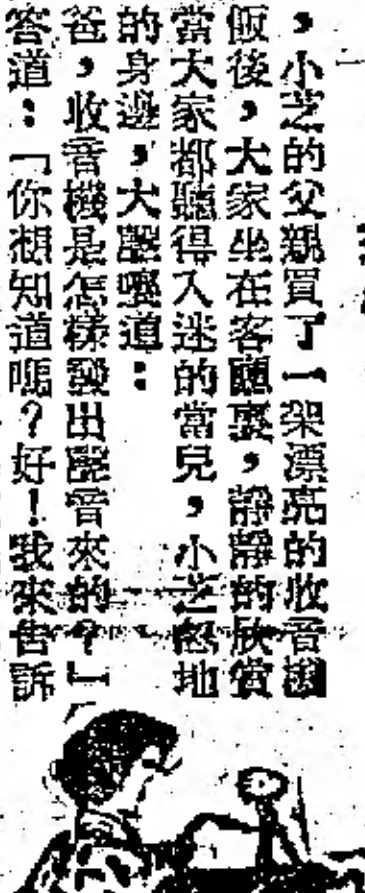 ，小芝的父親買了一架漂亮的收音機
飯後，大家坐在客廳裏，靜靜的欣賞
當大家都聽得入迷的當兒，小芝忽地
的身邊，大聲嚷道：
爸，收音機是怎樣發出聲音來的？」
答道：「你想知道嗎？好！我來告訴